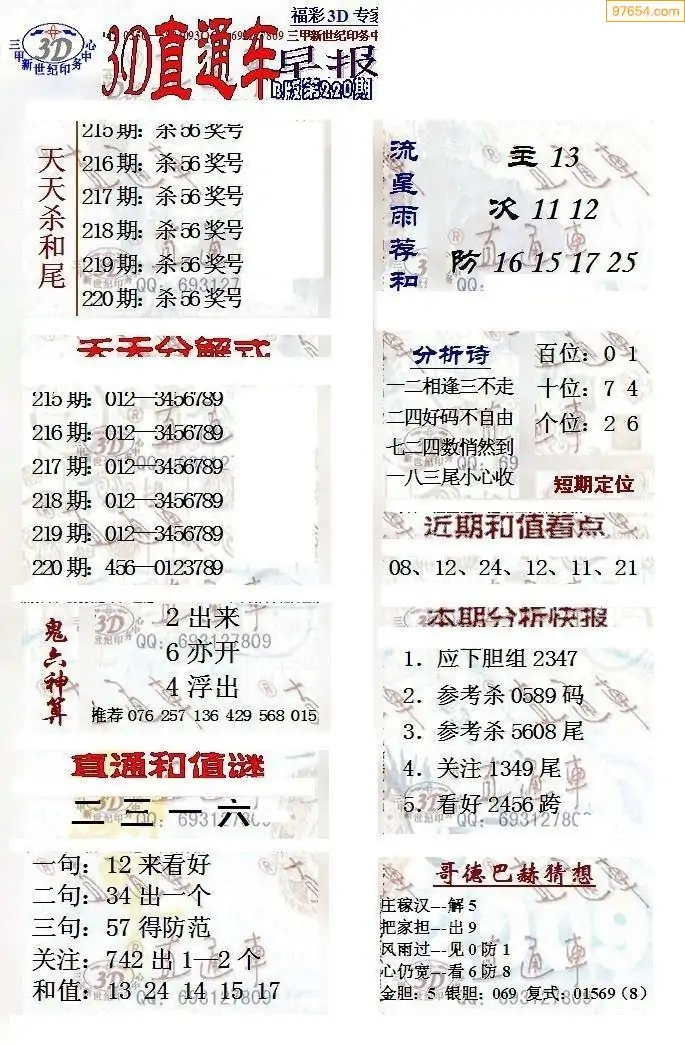 97654.com
福彩3D 专家
三甲新世纪印务中心
3D直通车
早报
B版第220期
天天杀和尾
215期: 杀56奖号
216期: 杀56奖号
217期: 杀56奖号
218期: 杀56奖号
219期: 杀56奖号
220期: 杀56奖号
流星雨荐和
主 13
次 11 12
防 16 15 17 25
天天分解式
215期: 012—3456789
216期: 012—3456789
217期: 012—3456789
218期: 012—3456789
219期: 012—3456789
220期: 456—0123789
分析诗
一二相逢三不走
二四好码不自由
七二四数悄然到
一八三尾小心收
百位: 0 1
十位: 7 4
个位: 2 6
短期定位
近期和值看点
08、12、24、12、11、21
鬼六神算
2 出来
6 亦开
4 浮出
推荐 076 257 136 429 568 015
本期分析快报
1. 应下胆组 2347
2. 参考杀 0589 码
3. 参考杀 5608 尾
4. 关注 1349 尾
5. 看好 2456 跨
直通和值谜
二 三 一 六
一句: 12 来看好
二句: 34 出一个
三句: 57 得防范
关注: 742 出 1—2 个
和值: 13 24 14 15 17
哥德巴赫猜想
庄稼汉---解 5
把家担---出 9
风雨过---见 0 防 1
心仍宽---看 6 防 8
金胆: 5 银胆: 069 复式: 01569 (8)